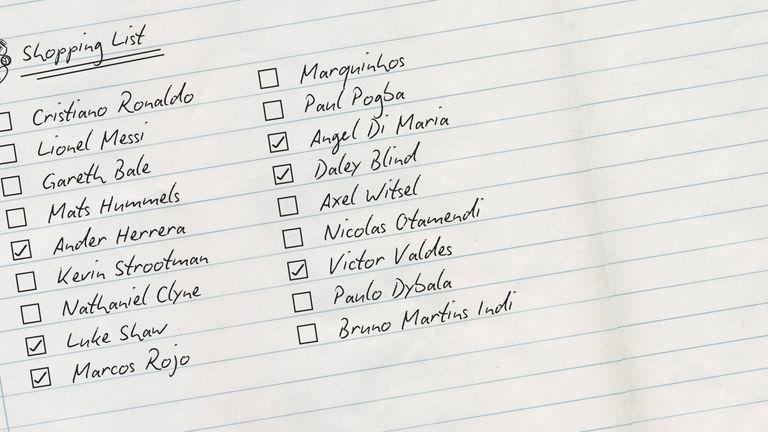 Shopping List
Cristiano Ronaldo
Lionel Messi
Gareth Bale
Mats Hummels
Ander Herrera
Kevin Strootman
Nathaniel Clyne
Luke Shaw
Marcos Rojo
Marquinhos
Paul Pogba
Angel Di Maria
Daley Blind
Axel Witsel
Nicolas Otamendi
Victor Valdes
Paulo Dybala
Bruno Martins Indi